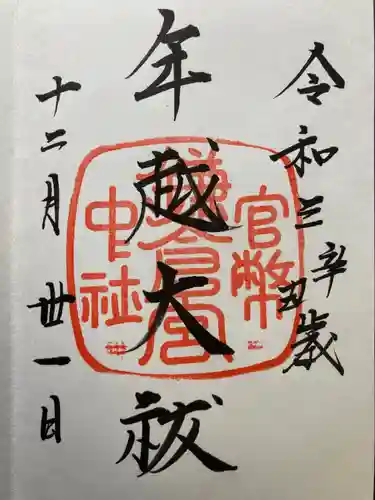 令和三辛丑歳
年越大祓
十二月丗一日
官幣
鎌倉宮
中社